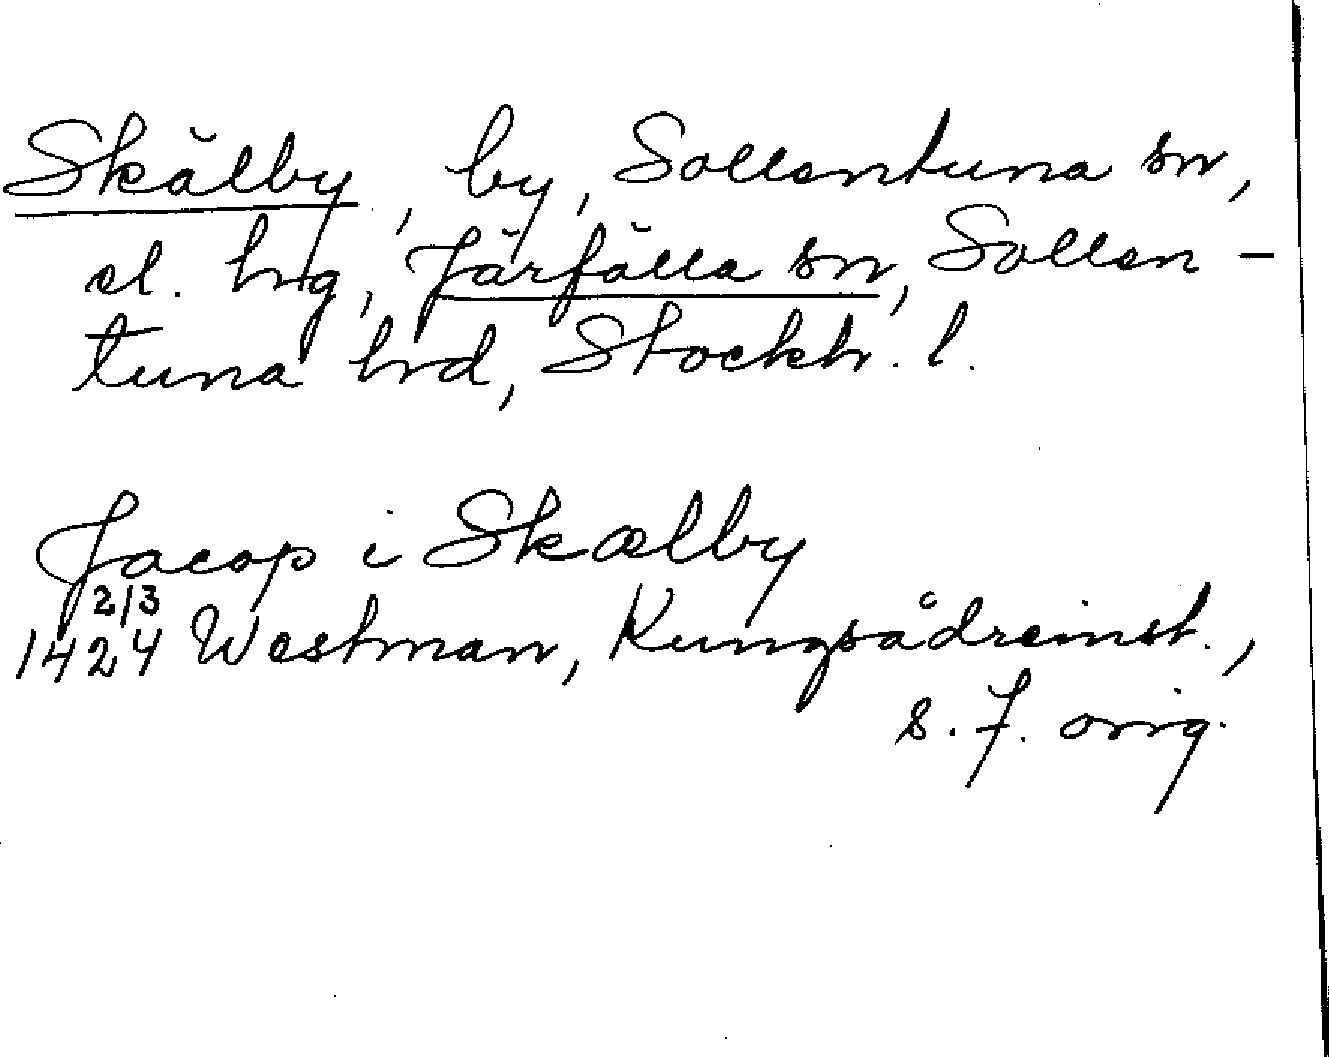 Skälby, by, Sollentuna sn,
el. hrg, Järfälla sn, Sollen-
tuna hrd, Stockh. l.
Jacop i Skælby
2/3
1424 Westman, Kungsådreinst.,
s. 7. orig.